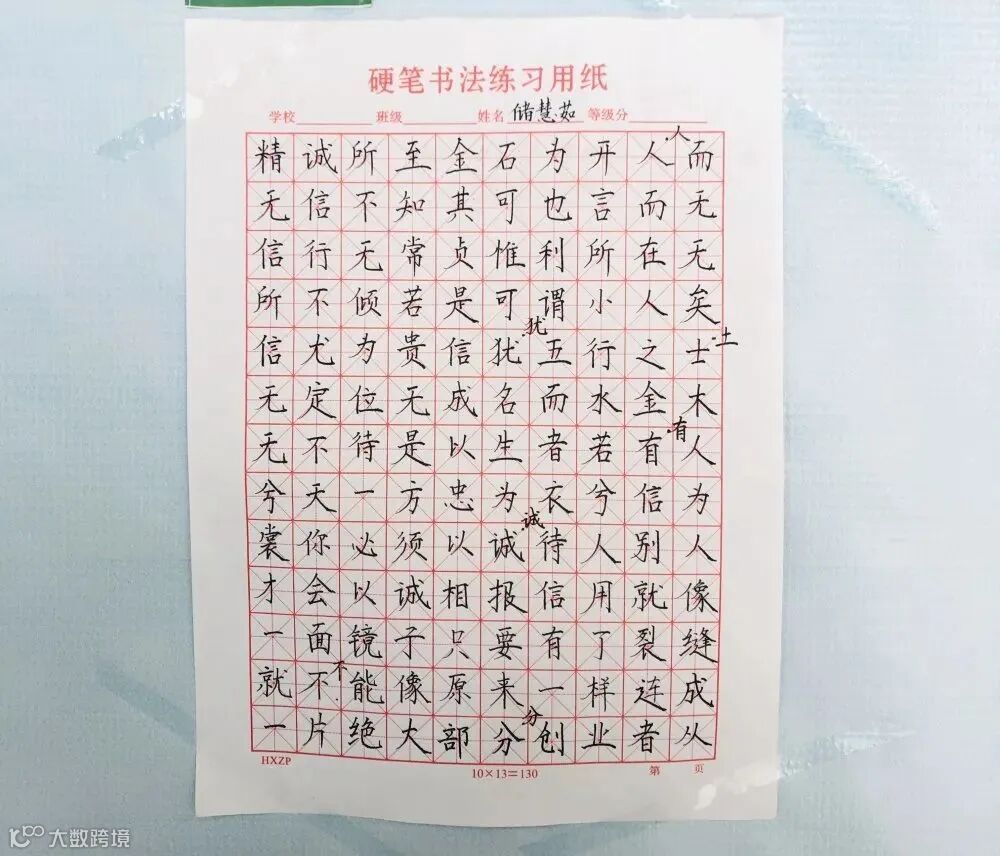 硬笔书法练习用纸
学校 班级 姓名 储慧茹 等级分
精诚所至金石为开人而
人
无信不知其可也言而无
信行无常贞惟利所在无
所不倾若是可谓小人矣
犹
信尤为贵信犹五行之士
土
无定位无成名而水金木
无不待是以生者若有人
有
兮天一方忠为衣兮信为
裳你必须以诚待人别人
诚
才会以诚相报信用就像
一面镜子只要有了裂缝
就不能像原来一样连成
不
一片绝大部分创业者从
分
HXZP
10×13=130
第 页
大数跨境